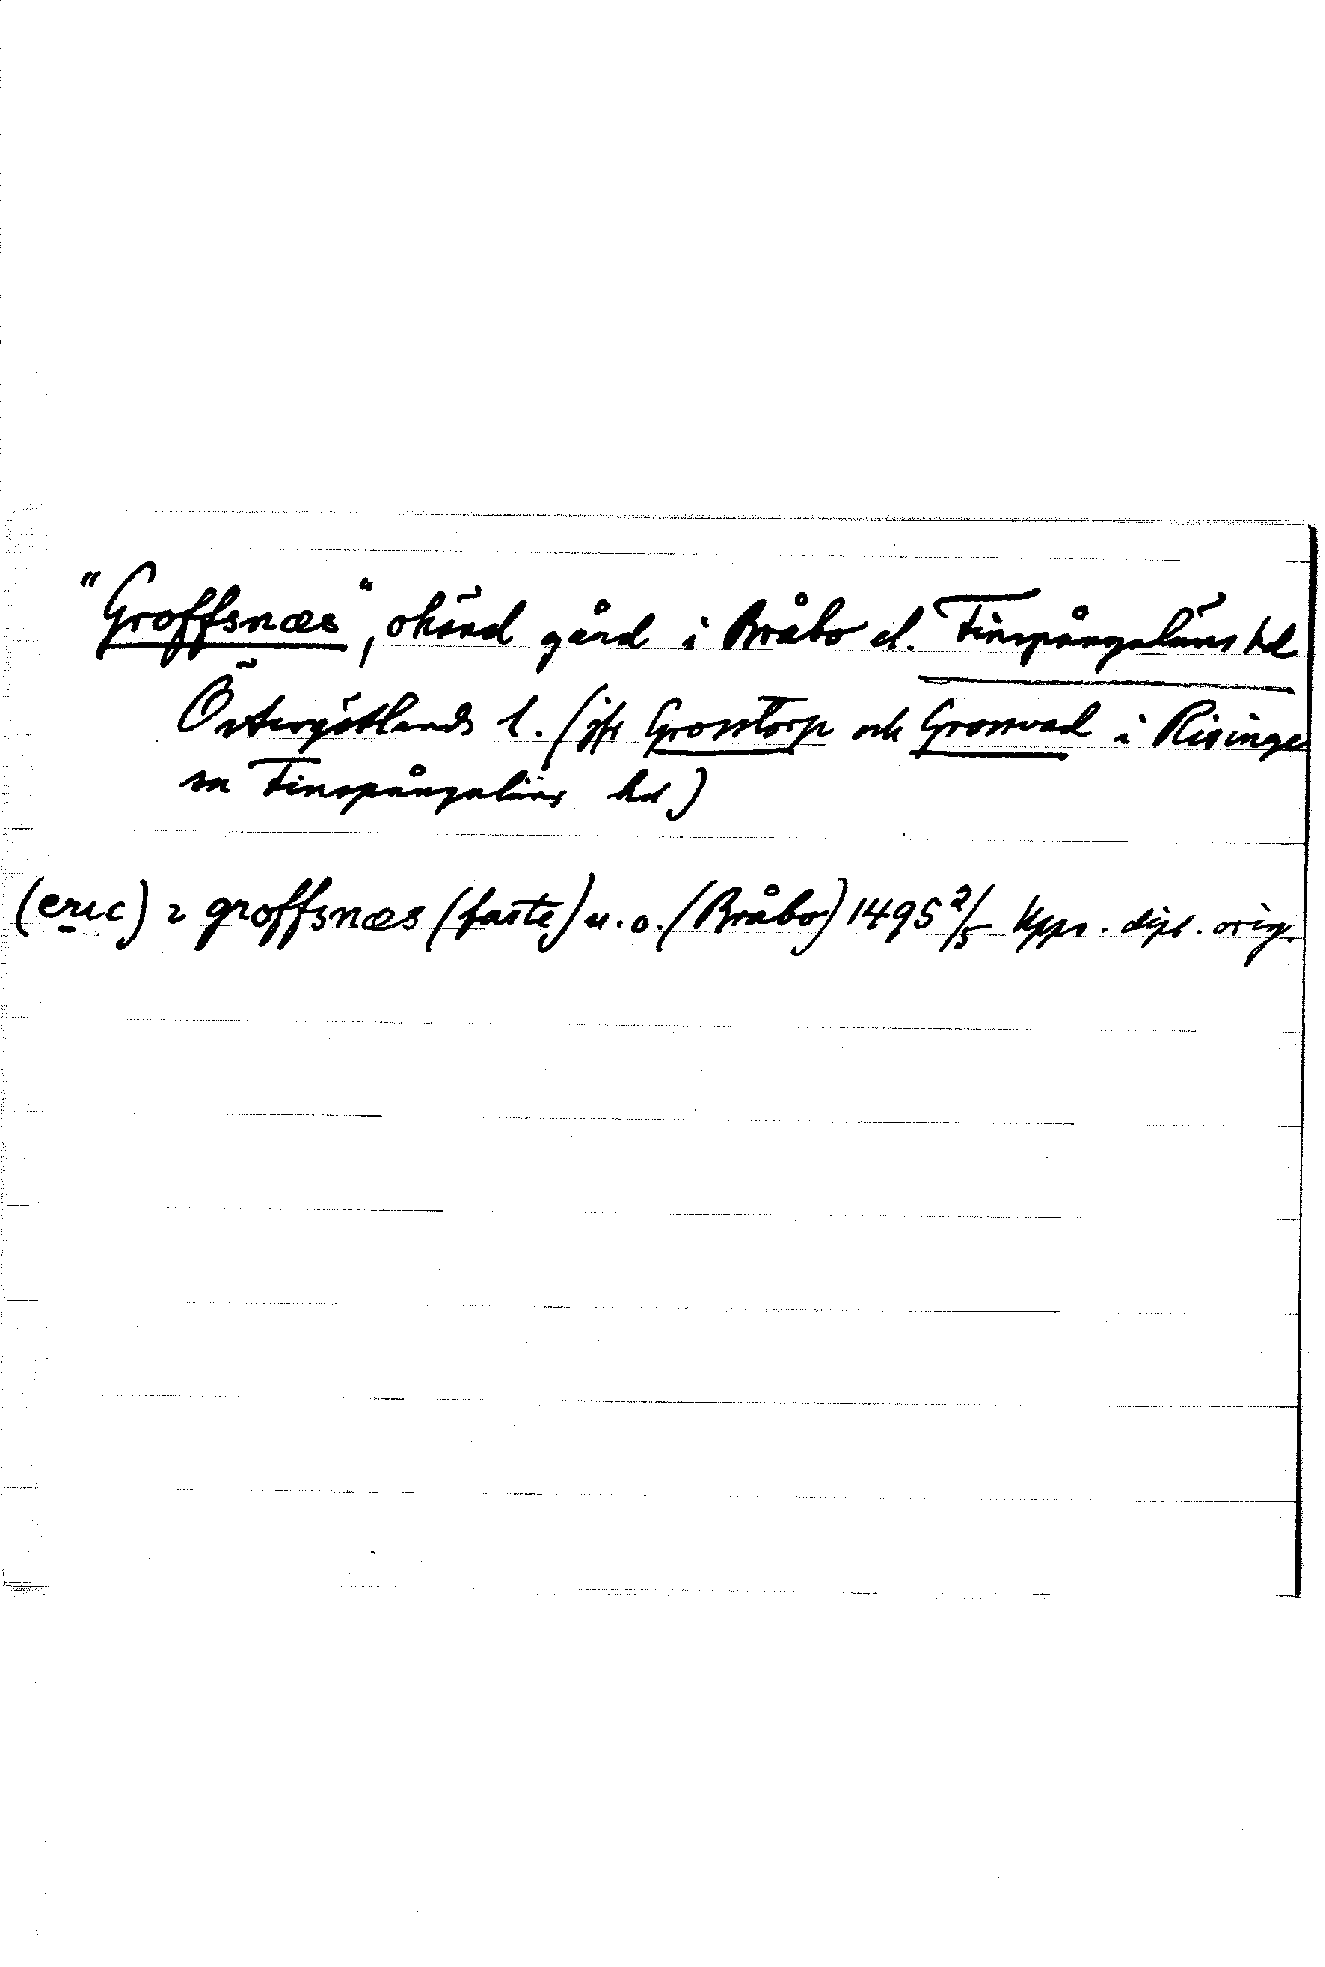 "Groffsnæs", okänd gård i Bråbo el. Finspångaläns hd
Östergötlands l. (jfr Grosstorp och Grosvad i Risinge
sn Finspångaläns hd)
(eric) i groffsnæs (faste) u. o. (Bråbo) 1495 2/5 Upps. dipl. orig.